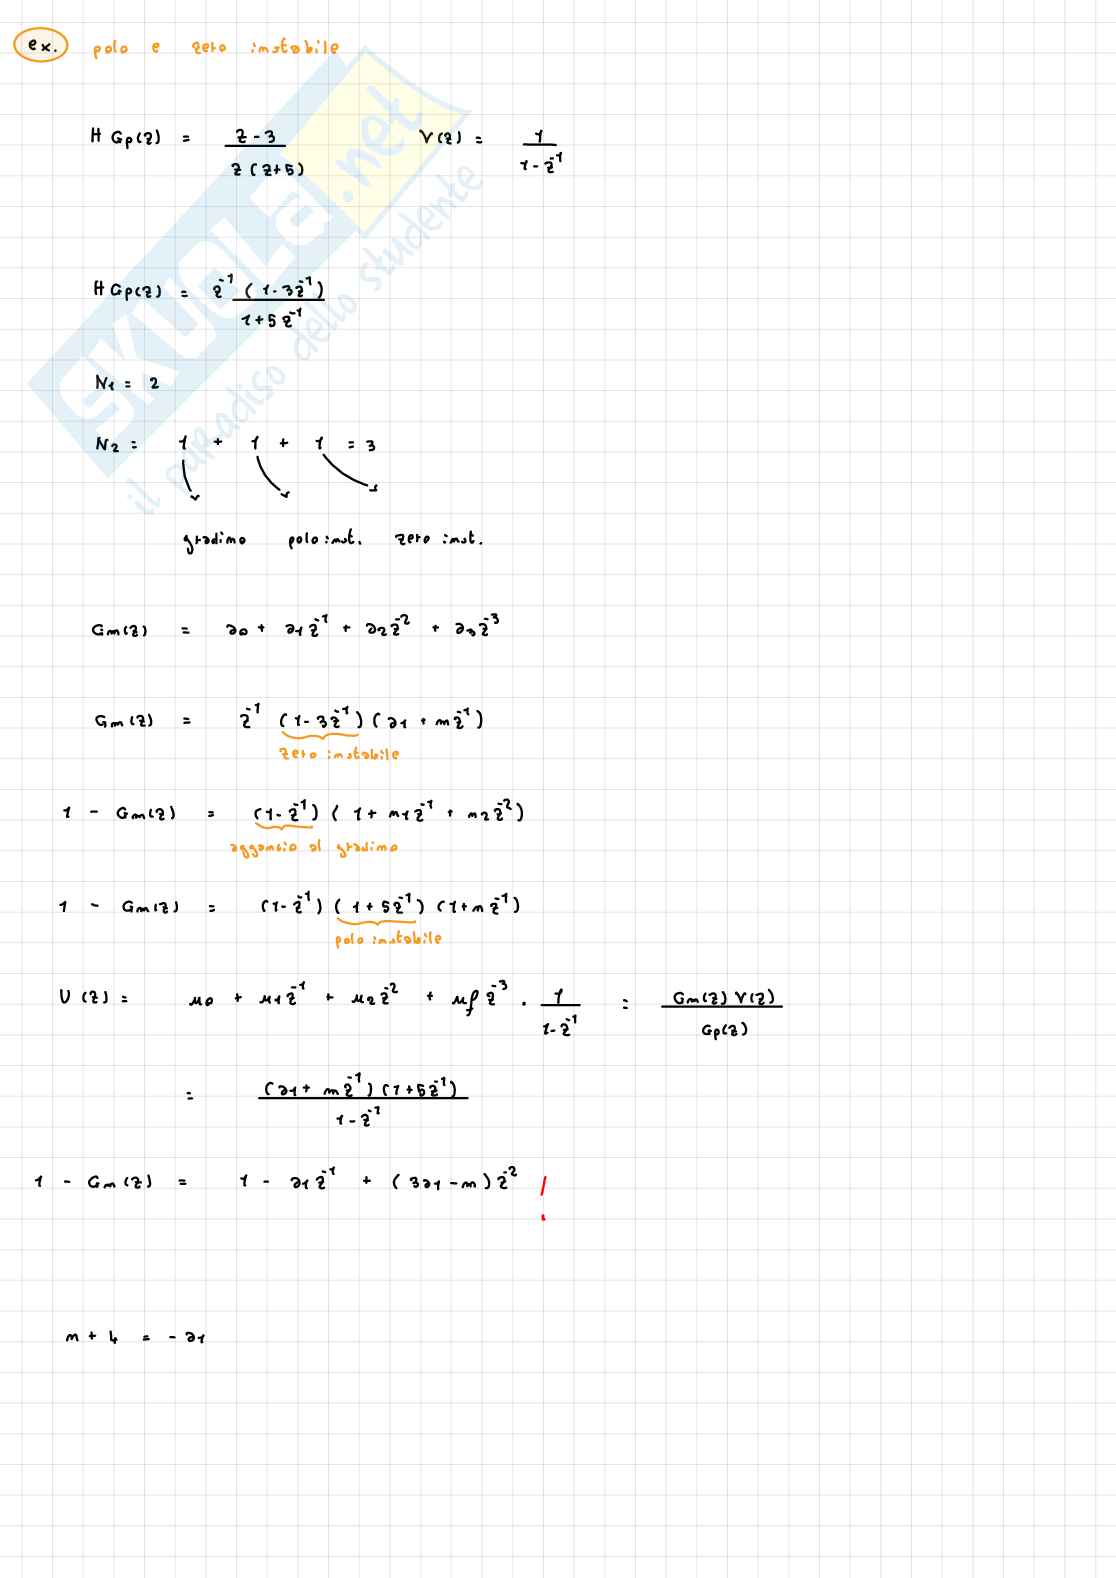 ex. polo e zero instabile
HGp(z) = z-3 / z(z+5) V(z) = 1 / 1-z^-1
HGp(z) = z^-1 (1-3z^-1) / 1+5z^-1
N1 = 2
N2 = 1 + 1 + 1 = 3
gradino polo inst. zero inst.
Gm(z) = a0 + a1z^-1 + a2z^-2 + a3z^-3
Gm(z) = z^-1 (1-3z^-1)(a1 + mz^-1)
zero instabile
1 - Gm(z) = (1-z^-1)(1 + n1z^-1 + n2z^-2)
aggancio al gradino
1 - Gm(z) = (1-z^-1)(1+5z^-1)(1+nz^-1)
polo instabile
U(z) = μ0 + μ1z^-1 + μ2z^-2 + μf z^-3 . 1 / 1-z^-1 = Gm(z)V(z) / Gp(z)
= (a1 + mz^-1)(1+5z^-1) / 1-z^-1
1 - Gm(z) = 1 - a1z^-1 + (3a1-m)z^-2 !
n + 4 = - a1
SKUOLA.net
il paradiso dello studente